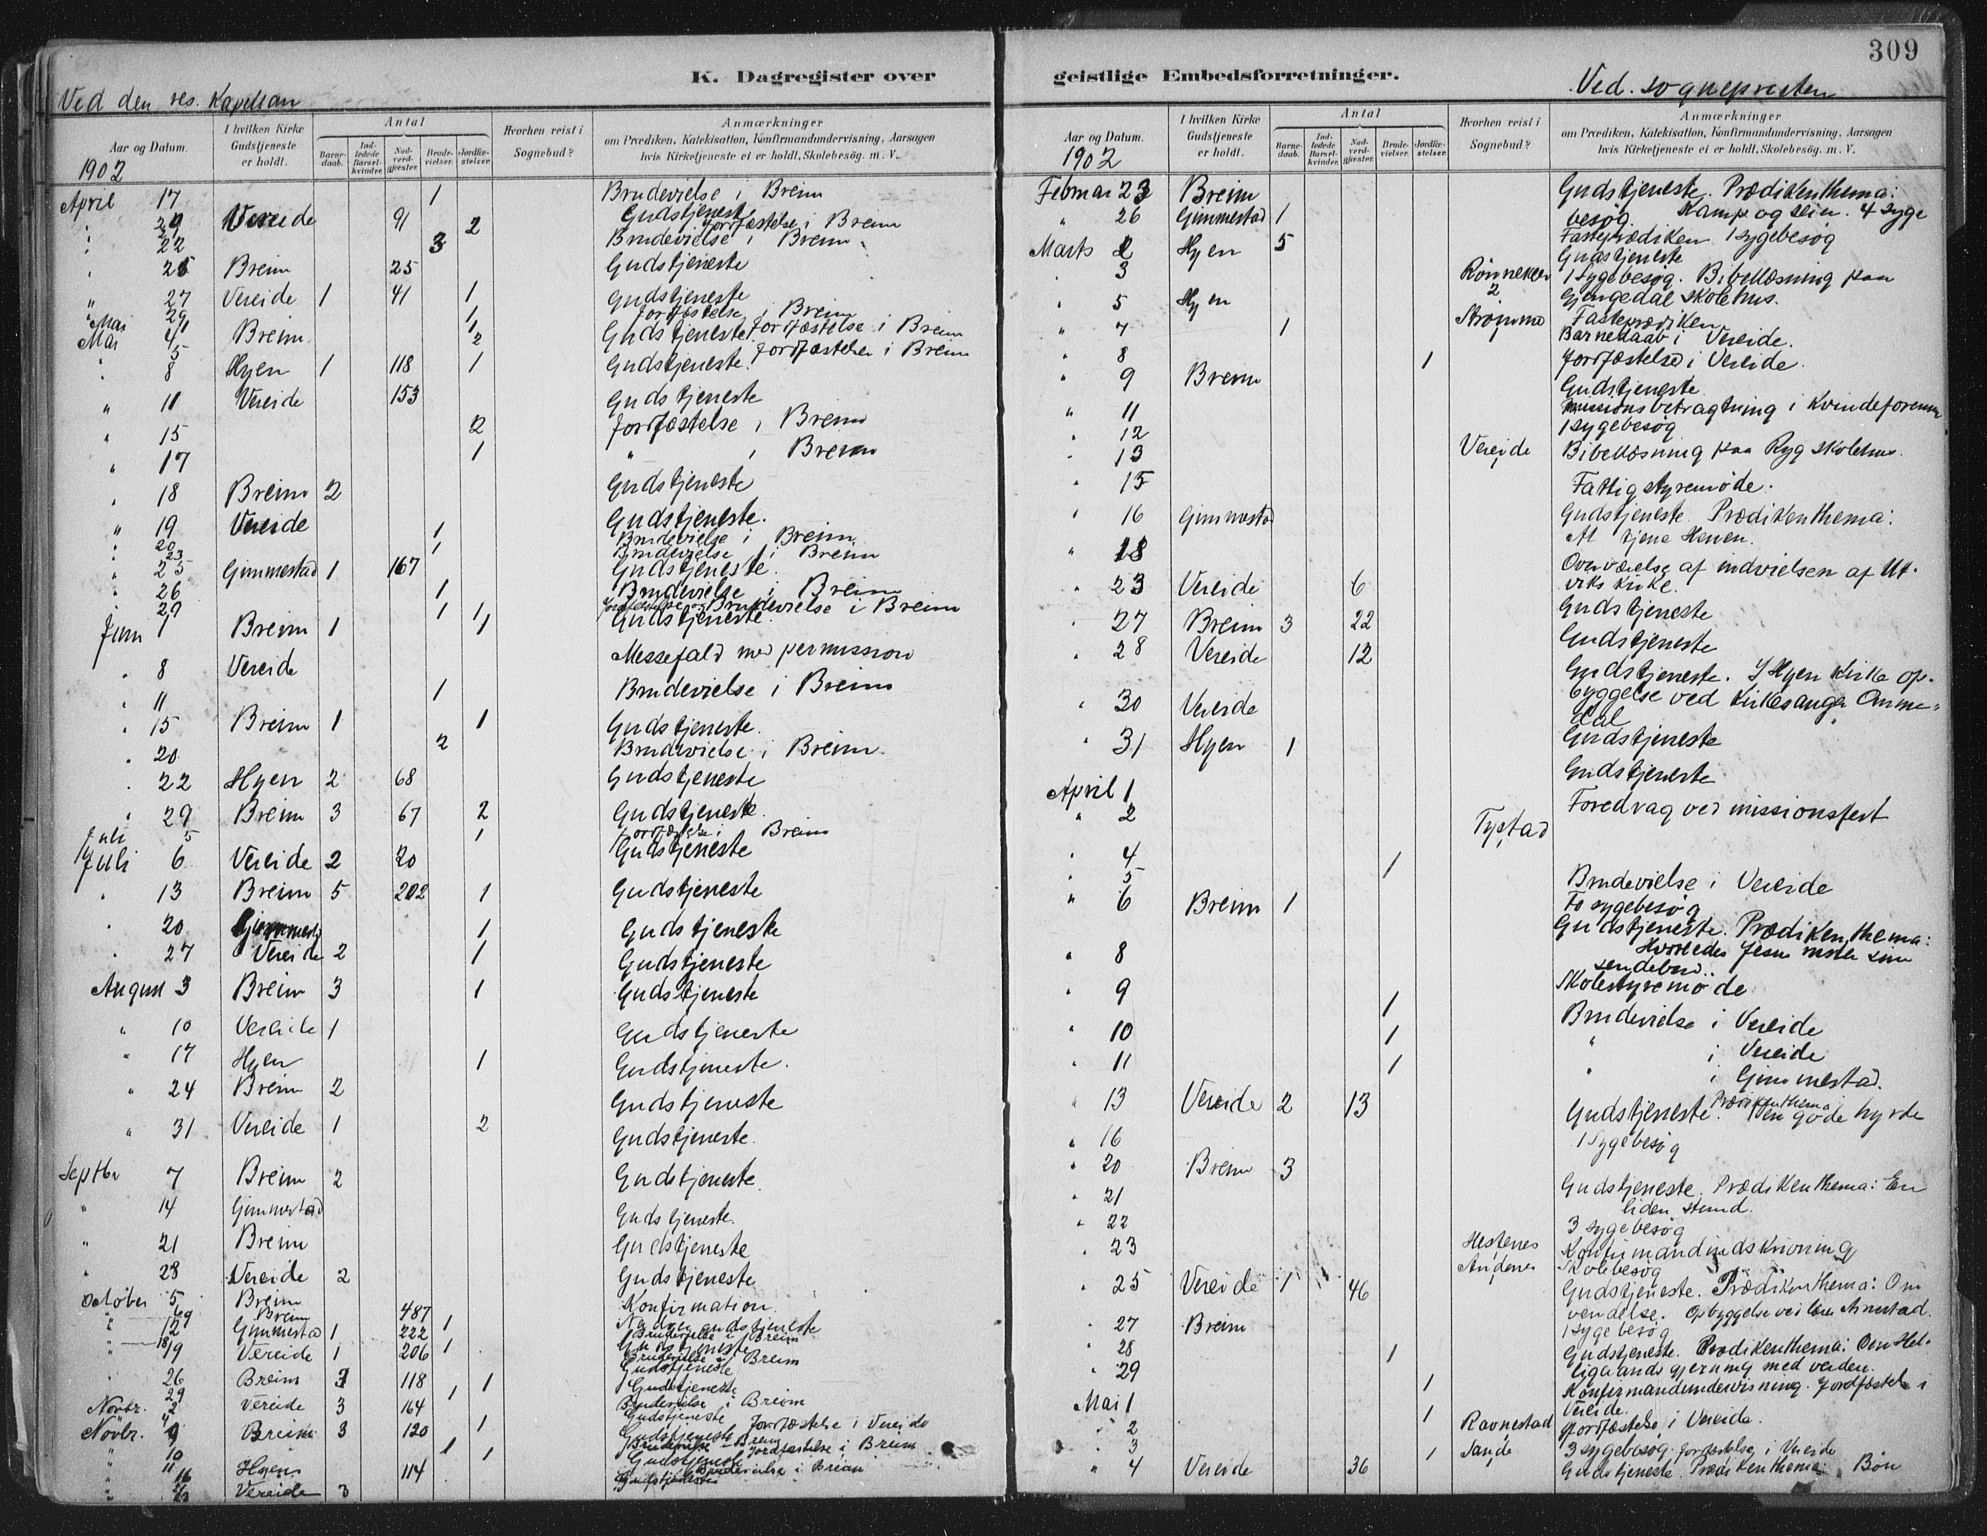 309
K. Dagregister over
Ved den res. Kapellan
Aar og Datum. I hvilken Kirke Gudstjeneste er holdt. Antal Barnedaab. Indledede Barselkvinder. Nadverdgjæster. Brudevielser. Jordfæstelser. Hvorhen reist i Sognebud? Anmærkninger om Prædiken, Katekisation, Konfirmandundervisning, Aarsagen hvis Kirketjeneste ei er holdt, Skolebesøg m. V.
1902
April 17 1 Brudevielse i Breim
" 20 Vereide 91 2 Gudstjeneste Jordfæstelse i Breim
" 22 3 Brudevielse i Breim
" 25 Breim 25 Gudstjeneste
" 27 Vereide 1 41 1 Gudstjeneste
" 29 1 Jordfæstelse i Breim
Mai 1 1 Jordfæstelse i Breim
Mai 4 Breim 2 Gudstjeneste
5 Jordfæstelse i Breim
" 8 Hyen 1 118 1 Gudstjeneste.
" 11 Vereide 153 Gudstjeneste
" 15 2 Jordfæstelse i Breim
" 17 1 " i Breim
" 18 Breim 2 Gudstjeneste
" 19 Vereide Gudstjeneste.
" 20 1 Brudevielse i Breim
" 23 1 Brudevielse i Breim
" 25 Gimmestad 1 167 Gudstjeneste.
" 26 1 Brudevielse i Breim
" 29 1 1 Jordfæstelse og Brudevielse i Breim
Juni 1 Breim 1 1 Gudstjeneste.
" 8 Vereide Messefald med permission
" 11 1 Brudevielse i Breim
" 15 Breim 1 1 Gudstjeneste.
" 20 2 Brudevielse i Breim.
" 22 Hyen 2 68 Gudstjeneste
" 29 Breim 3 67 2 Gudstjeneste.
Juli 5 1 Jordfæstelse i Breim
Juli 6 Vereide 2 20 Gudstjeneste
" 13 Breim 5 202 1 Gudstjeneste
" 20 Gimmestad 1 Gudstjeneste
" 27 Vereide 2 1 Gudstjeneste
August 3 Breim 3 1 Gudstjeneste
" 10 Vereide 1 Gudstjeneste
" 17 Hyen 1 Gudstjeneste.
" 24 Breim 2 Gudstjeneste
" 31 Vereide 1 2 Gudstjeneste.
Septbr 7 Breim 2 Gudstjeneste.
" 14 Gimmestad Gudstjeneste.
" 21 Breim Gudstjeneste
" 28 Vereide 2 Gudstjeneste
October 5 Breim Konfirmation.
" Breim 487
" 12 Gimmestad 1 222 1 Brudevielse i Breim
" 19 Vereide 1 206 1 Brudevielse i Breim
" 26 Breim 3 118 1 Gudstjeneste
29 1 Brudevielse i Breim
Novbr. 2 Vereide 3 164 Gudstjeneste
4 1 Jordfæstelse i Vereide
Novbr. 9 Breim 3 120 Gudstjeneste
" 10 1 1 Jordfæstelse i Breim
" 11 Brudevielse i Breim
" 16 Hyen 114 Gudstjeneste
" 23 Vereide 3 Gudstjeneste
geistlige Embedsforretninger.
Ved sognepresten
Aar og Datum. I hvilken Kirke Gudstjeneste er holdt. Antal Barnedaab. Indledede Barselkvinder. Nadverdgjæster. Brudevielser. Jordfæstelser. Hvorhen reist i Sognebud? Anmærkninger om Prædiken, Katekisation, Konfirmandundervisning, Aarsagen hvis Kirketjeneste ei er holdt, Skolebesøg m. V.
1902
Februar 23 Breim Gudstjeneste. Prædikenthema:
Kamp og seir. 4 syge
besøg.
" 26 Gimmestad 1 Fasteprædiken 1 sygebesøg
Marts 2 Hyen 5 Gudstjeneste
" 3 1 sygebesøg. Bibellæsning paa
Gjengedal skolehus.
" 5 Hyen 2 Fasteprædiken
" 7 1 Strømme Barnedaab i Vereide.
" 8 1 Jordfæstelse i Vereide.
" 9 Breim Gudstjeneste
" 11 missionsbetragtning i Kvindeforening
" 12 1 sygebesøg
" 13 Vereide Bibellæsning paa Ryg skolehus.
" 15 Fattigstyremøde.
" 16 Gimmestad Gudstjeneste Prædikenthema:
At tjene Herren.
" 18 Overværelse af indvielsen af Ut-
viks kirke.
" 23 Vereide 6 Gudstjeneste
" 27 Breim 3 22 Gudstjeneste
" 28 Vereide 12 Gudstjeneste. I Hyen kirke op-
byggelse ved kirkesanger Omme-
dal
" 30 Vereide Gudstjeneste
" 31 Hyen 1 Gudstjeneste
April 1 Foredrag ved missionsfest
" 2 Tystad
" 4 1 Brudevielse i Vereide
" 5 To sygebesøg
" 6 Breim 1 Gudstjeneste. Prædikenthema:
Hvorledes Jesu
sendebud
" 8 Skolestyremøde
" 9 1 Brudevielse i Vereide
" 10 1 " i Vereide
" 11 1 " i Gimmestad.
" 13 Vereide 2 13 Gudstjeneste. Prædikenthema: Den gode hyrde
" 16 1 sygebesøg
" 20 Breim 3 Gudstjeneste. Prædikenthema: En
liden stund.
" 21 3 sygebesøg
" 22 Hestenes Konfirmandindskrivning
" 23 Andenes Skolebesøg
" 25 Vereide 1 46 Gudstjeneste. Prædikenthema: Om
vendelse. Opbyggelse ved lærer Arnestad.
1 sygebesøg
" 27 Breim Gudstjeneste. Prædikenthema: Den Hel-
ligaands gjerning med verden.
" 28 1
" 29 1 Konfirmandundervisning. Jordfæstelse i
Vereide.
Mai 1 1 Jordfæstelse i Vereide.
" 2 Ravnestad
" 3 1 Sande 3 sygebesøg. Jordfæstelse i Vereide
" 4 Vereide 36 Gudstjeneste. Prædikenthema: Bøn